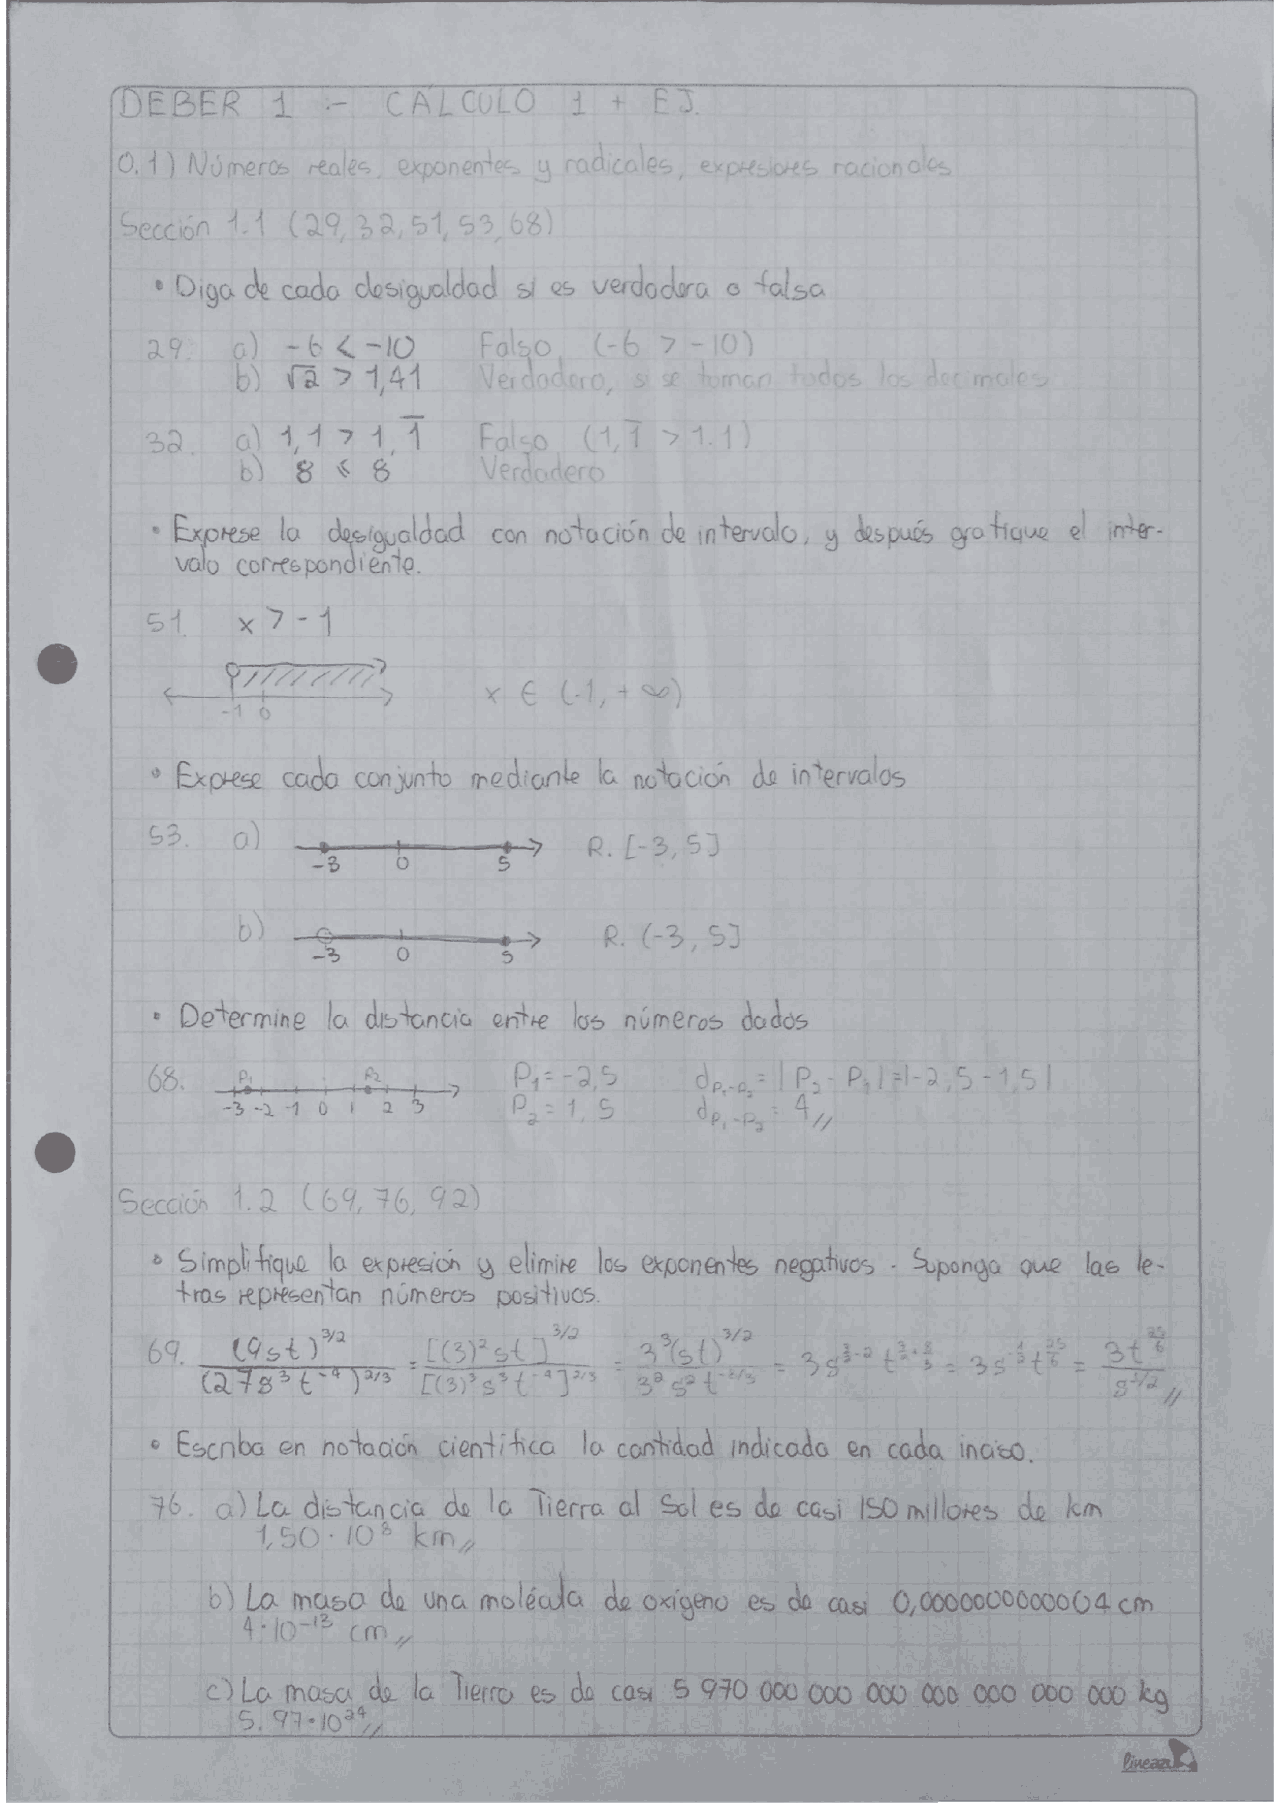 DEBER 1 :- CÁLCULO 1 + EJ.
0.1) Números reales, exponentes y radicales, expresiones racionales
Sección 1.1 (29, 32, 51, 53, 68)
• Diga de cada desigualdad si es verdadera o falsa
29. a) -6 < -10 Falso (-6 > -10)
b) √2 > 1,41 Verdadero, si se toman todos los decimales
32. a) 1,1 > 1,1̅ Falso (1,1̅ > 1.1)
b) 8 ≤ 8 Verdadero
• Exprese la desigualdad con notación de intervalo, y después grafique el inter-
valo correspondiente.
51. x > -1
-1 0 x ∈ (-1, +∞)
• Exprese cada conjunto mediante la notación de intervalos
53. a) -3 0 5 R. [-3, 5]
b) -3 0 5 R. (-3, 5]
• Determine la distancia entre los números dados
68. P₁ P₂ P₁ = -2,5 d_P₁-P₂ = |P₂ - P₁| = |-2,5 - 1,5|
-3 -2 -1 0 1 2 3 P₂ = 1,5 d_P₁-P₂ = 4 //
Sección 1.2 (69, 76, 92)
• Simplifique la expresión y elimine los exponentes negativos. Suponga que las le-
tras representan números positivos.
69. (9st)^3/2 / (27s³t⁻⁴)^2/3 = [(3)²st]^3/2 / [(3)³s³t⁻⁴]^2/3 = 3³(st)^3/2 / 3²s²t^-8/3 = 3s^(3/2-2) t^(3/2+8/3) = 3s^-1/2 t^25/6 = 3t^25/6 / s^1/2 //
• Escriba en notación científica la cantidad indicada en cada inciso.
76. a) La distancia de la Tierra al Sol es de casi 150 millones de km
1,50 · 10⁸ km //
b) La masa de una molécula de oxígeno es de casi 0,0000000000004 cm
4 · 10⁻¹³ cm //
c) La masa de la Tierra es de casi 5 970 000 000 000 000 000 000 000 kg
5,97 · 10²⁴ //
lineaazul